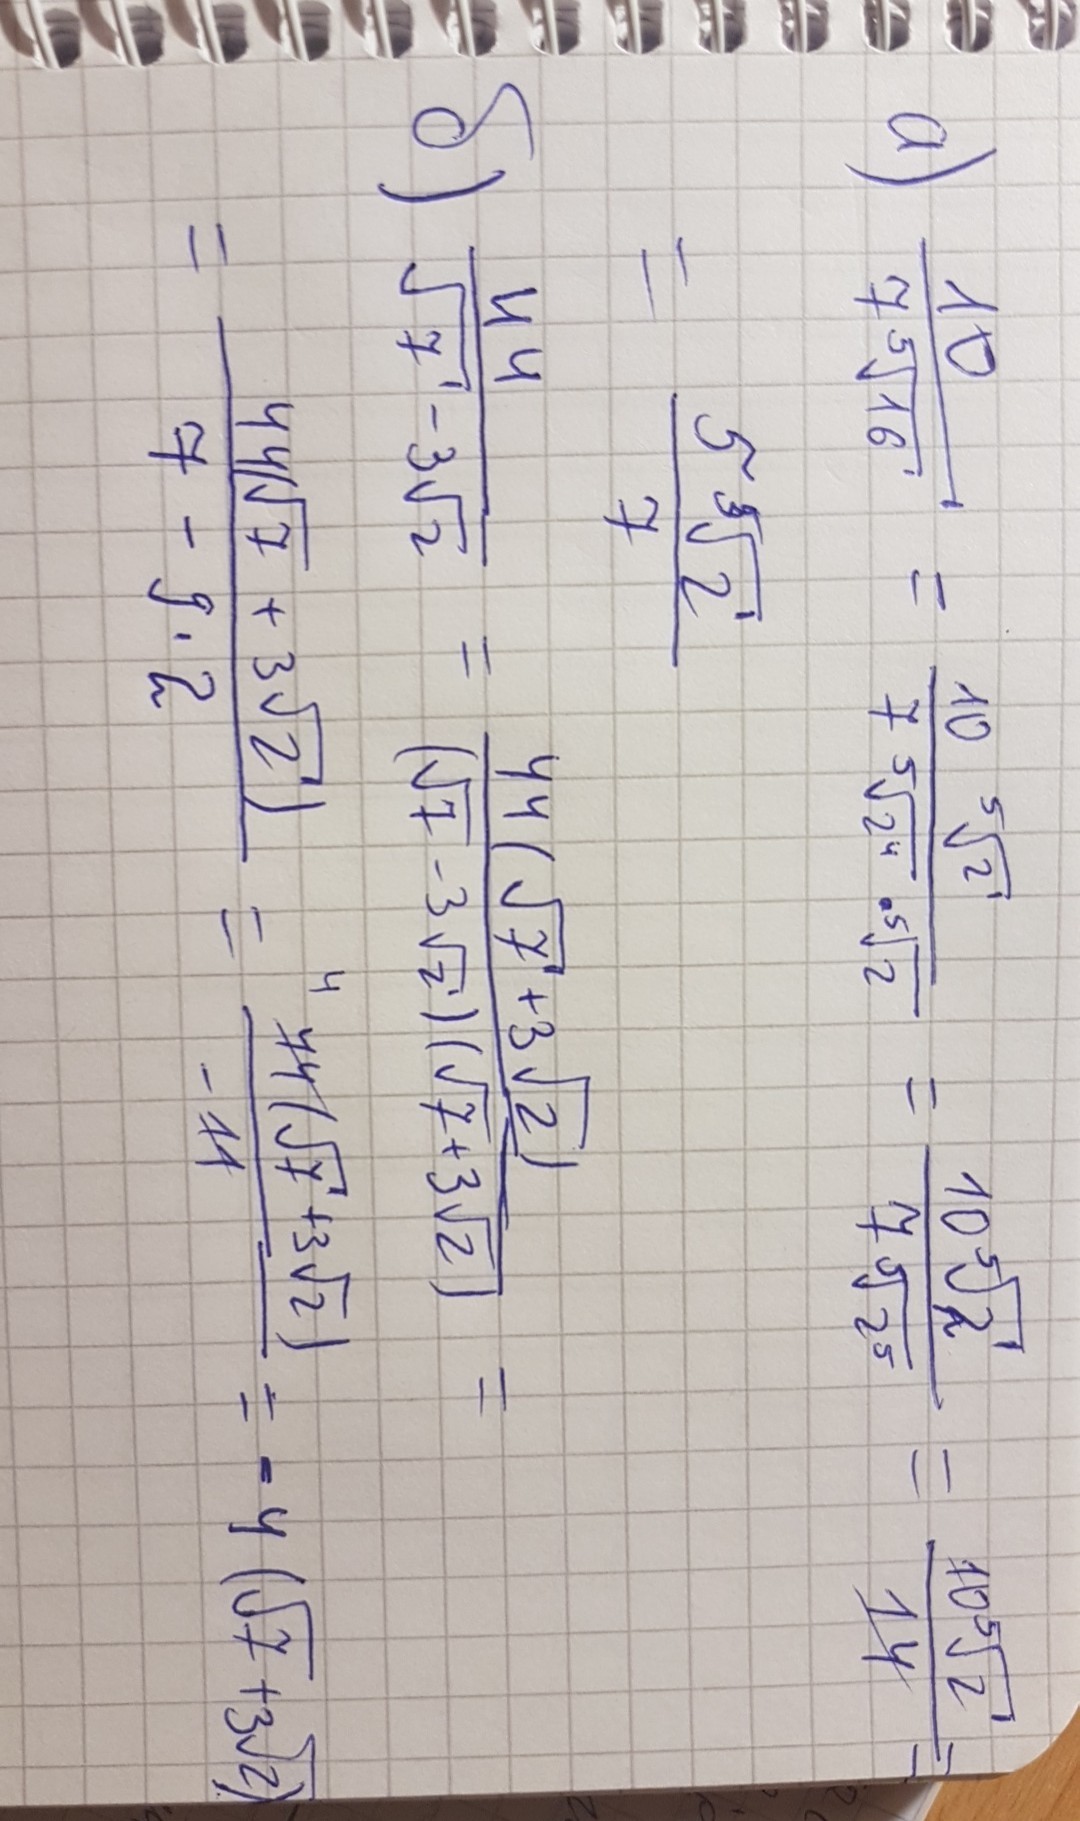 а) 10 / 7⁵√16 = 10 ⁵√2 / 7 ⁵√2⁴ · ⁵√2 = 10⁵√2 / 7⁵√2⁵ = 10⁵√2 / 14 =
= 5 ⁵√2 / 7
б) 44 / √7 - 3√2 = 44(√7 + 3√2) / (√7 - 3√2)(√7 + 3√2) =
= 44(√7 + 3√2) / 7 - 9·2 = ⁴ 44(√7 + 3√2) / -11 = -4(√7 + 3√2)